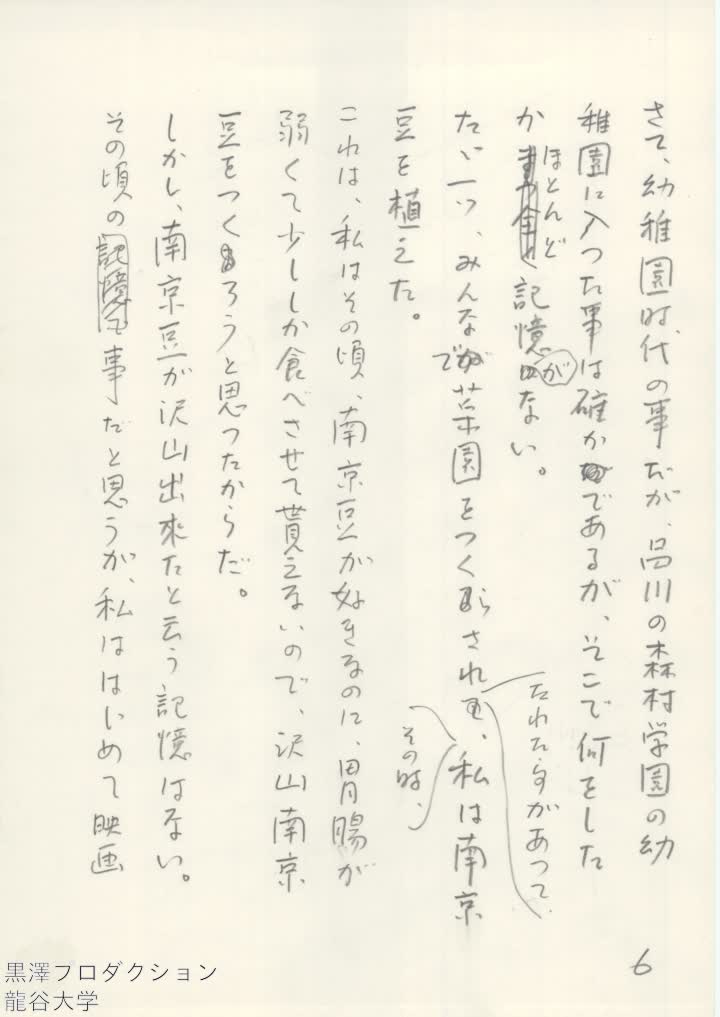 さて、幼稚園時代の事だが、品川の森村学園の幼
稚園に入つた事は確かであるが、そこで何をした
か
ほとんど
記憶
が
ない。
たゞ一つ、みんなで菜園をつくらされ
たれた事があつて、
その時、
私は南京
豆を植えた。
これは、私はその頃、南京豆が好きなのに、胃腸が
弱くて少ししか食べさせて貰えないので、沢山南京
豆をつくろうと思つたからだ。
しかし、南京豆が沢山出来たと云う記憶はない。
その頃の
事だと思うが、私ははじめて映画
6
黒澤プロダクション
龍谷大学